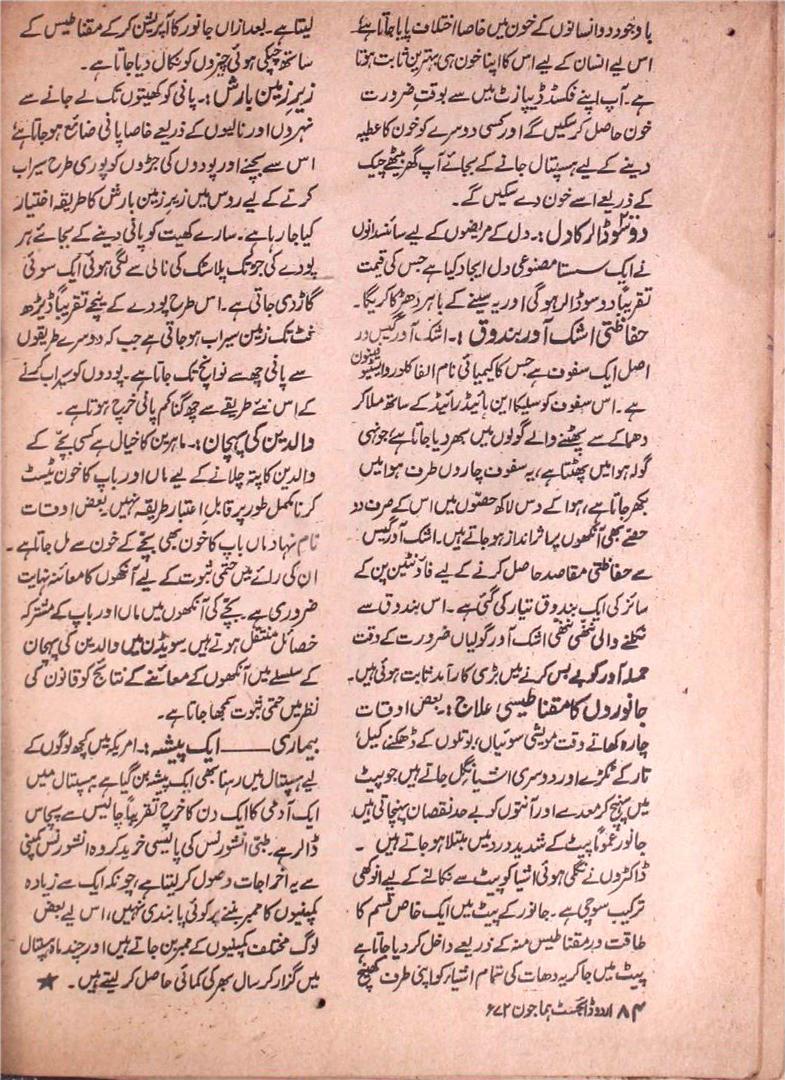 باوجود دو انسانوں کے خون میں خاصا اختلاف پایا جاتا ہے۔
اس لیے انسان کے لیے اس کا اپنا خون ہی بہترین ثابت ہوتا
ہے۔ آپ اپنے فکسڈ ڈیپازٹ میں سے بوقتِ ضرورت
خون حاصل کر سکیں گے اور کسی دوسرے کو خون کا عطیہ
دینے کے لیے ہسپتال جانے کے بجائے آپ گھر بیٹھے چیک
کے ذریعے اسے خون دے سکیں گے۔
دو سو ڈالر کا دل :۔ دل کے مریضوں کے لیے سائنسدانوں
نے ایک سستا مصنوعی دل ایجاد کیا ہے جس کی قیمت
تقریباً دو سو ڈالر ہو گی اور یہ سینے کے باہر دھڑکا کریگا۔
حفاظتی اشک آور بندوق :۔ اشک آور گیس در
اصل ایک سفوف ہے جس کا کیمیائی نام الفا کلورو
ہے۔ اس سفوف کو سلیکا این ہائیڈرائیڈ کے ساتھ ملا کر
دھماکے سے پھٹنے والے گولوں میں بھر دیا جاتا ہے؛ جونہی
گولہ ہوا میں پھٹتا ہے، یہ سفوف چاروں طرف ہوا میں
بکھر جاتا ہے، ہوا کے دس لاکھ حصّوں میں اس کے صرف دو
حصّے بھی آنکھوں پر اثر انداز ہو جاتے ہیں۔ اشک آور گیس
سے حفاظتی مقاصد حاصل کرنے کے لیے فاؤنٹین پن کے
سائز کی ایک بندوق تیار کی گئی ہے۔ اس بندوق سے
نکلنے والی ننھی ننھی اشک آور گولیاں ضرورت کے وقت
حملہ آور کو بے بس کرنے میں بڑی کارآمد ثابت ہوئی ہیں۔
جانوروں کا مقناطیسی علاج :۔ بعض اوقات
چارہ کھاتے وقت مویشی سوئیاں، بوتلوں کے ڈھکنے، کیل،
تار کے ٹکڑے اور دوسری اشیا نگل جاتے ہیں جو پیٹ
میں پہنچ کر معدے اور آنتوں کو بے حد نقصان پہنچاتی ہیں
جانور عموماً پیٹ کے شدید درد میں مبتلا ہو جاتے ہیں ۔
ڈاکٹروں نے نگلی ہوئی اشیا کو پیٹ سے نکالنے کے لیے انوکھی
ترکیب سوچی ہے۔ جانور کے پیٹ میں ایک خاص قسم کا
طاقت ور مقناطیس منہ کے ذریعے داخل کر دیا جاتا ہے
پیٹ میں جا کر یہ دھات کی تمام اشیاء کو اپنی طرف کھینچ
لیتا ہے۔ بعد ازاں جانور کا آپریشن کر کے مقناطیس کے
ساتھ چپکی ہوئی چیزوں کو نکال دیا جاتا ہے۔
زیرِ زمین بارش :۔ پانی کو کھیتوں تک لے جانے سے
نہروں اور نالیوں کے ذریعے خاصا پانی ضائع ہو جاتا ہے
اس سے بچنے اور پودوں کی جڑوں کو پوری طرح سیراب
کرنے کے لیے روس میں زیرِ زمین بارش کا طریقہ اختیار
کیا جا رہا ہے۔ سارے کھیت کو پانی دینے کے بجائے ہر
پودے کی جڑ تک پلاسٹک کی نالی سے لگی ہوئی ایک سوئی
گاڑ دی جاتی ہے۔ اس طرح پودے کے نیچے تقریباً ڈیڑھ
فٹ تک زمین سیراب ہو جاتی ہے جب کہ دوسرے طریقوں
سے پانی چھ سے نو انچ تک جاتا ہے۔ پودوں کو سیراب کرنے
کے اس نئے طریقے سے چھ گنا کم پانی خرچ ہوتا ہے۔
والدین کی پہچان :۔ ماہرین کا خیال ہے کسی بچّے کے
والدین کا پتہ چلانے کے لیے ماں اور باپ کا خون ٹیسٹ
کرنا مکمل طور پر قابلِ اعتبار طریقہ نہیں بعض اوقات
نام نہاد ماں باپ کا خون بھی بچّے کے خون سے مل جاتا ہے۔
ان کی رائے میں حتمی ثبوت کے لیے آنکھوں کا معائنہ نہایت
ضروری ہے۔ بچّے کی آنکھوں میں ماں اور باپ کے مشترکہ
خصائل منتقل ہوتے ہیں۔ سویڈن میں والدین کی پہچان
کے سلسلے میں آنکھوں کے معائنے کے نتائج کو قانون کی
نظر میں حتمی ثبوت سمجھا جاتا ہے۔
بیماری —— ایک پیشہ :۔ امریکہ میں کچھ لوگوں کے
لیے ہسپتال میں رہنا بھی ایک پیشہ بن گیا ہے۔ ہسپتال میں
ایک آدمی کا ایک دن کا خرچ تقریباً چالیس سے پچاس
ڈالر ہے۔ طبّی انشورنس کی پالیسی خرید کر وہ انشورنس کمپنی
سے یہ اخراجات وصول کر لیتا ہے، چونکہ ایک سے زیادہ
کمپنیوں کا ممبر بننے پر کوئی پابندی نہیں، اس لیے بعض
لوگ مختلف کمپنیوں کے ممبر بن جاتے ہیں اور چند ماہ ہسپتال
میں گزار کر سال بھر کی کمائی حاصل کر لیتے ہیں۔ ★
۸۴ اردو ڈائجسٹ ہما جون ۶۷۲